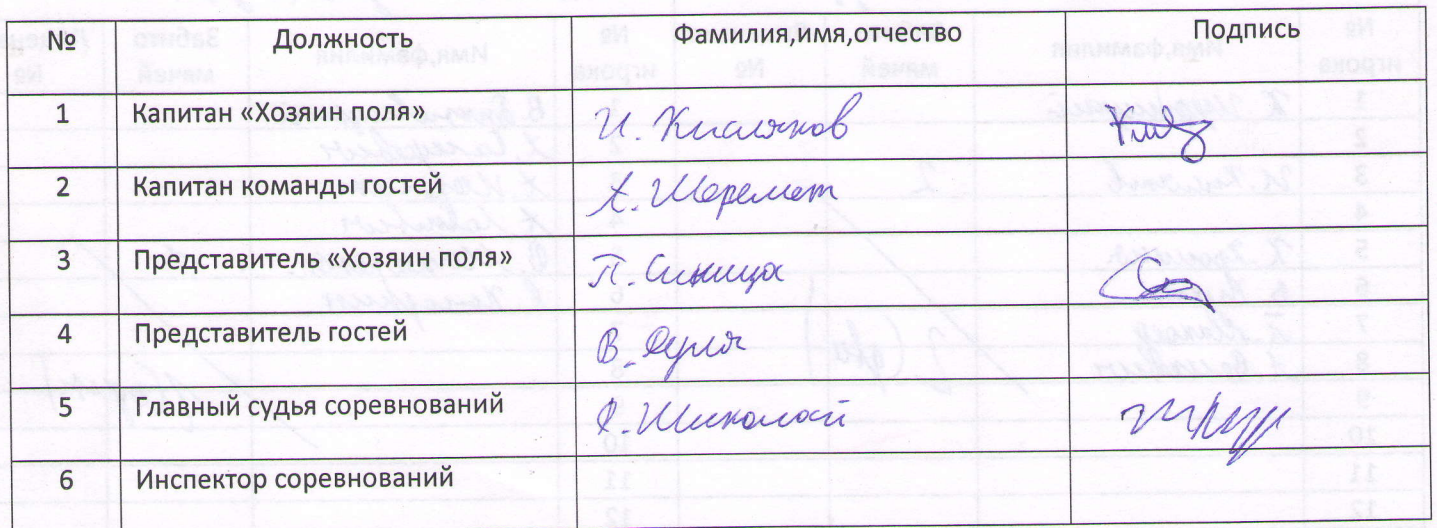 № Должность Фамилия,имя,отчество Подпись
1 Капитан «Хозяин поля» И. Кисляков
2 Капитан команды гостей А. Шеремет
3 Представитель «Хозяин поля» П. Синица
4 Представитель гостей В. Дуля
5 Главный судья соревнований Шиколай
6 Инспектор соревнований